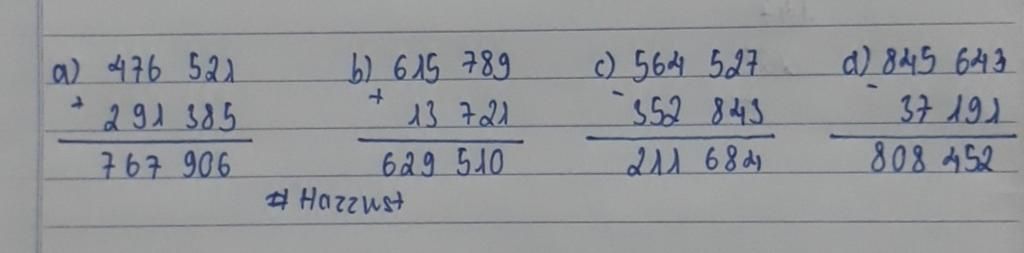 a) 476 521 b) 615 789 c) 564 527 d) 845 643
+ 291 385 + 13 721 - 352 843 - 37 191
767 906 629 510 211 684 808 452
# Hazzust